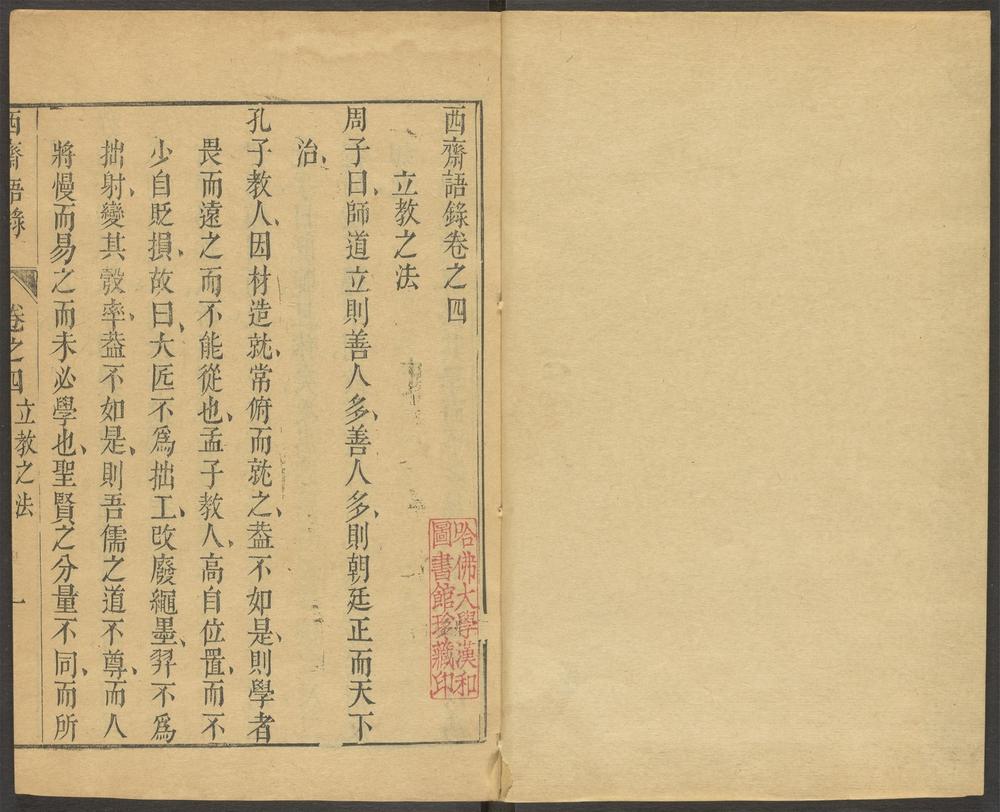 西齋語錄卷之四
立教之法
周子曰、師道立則善人多、善人多、則朝廷正而天下
治、
孔子教人、因材造就、常俯而就之、葢不如是、則學者
畏而遠之而不能從也、孟子教人、高自位置、而不
少自貶損、故曰、大匠不爲拙工、攺廢繩墨、羿不爲
拙射、變其彀率、葢不如是、則吾儒之道不尊、而人
將慢而易之而未必學也、聖賢之分量不同、而所
西齋語錄 卷之四 立教之法 一
哈佛大學漢和
圖書館珍藏印